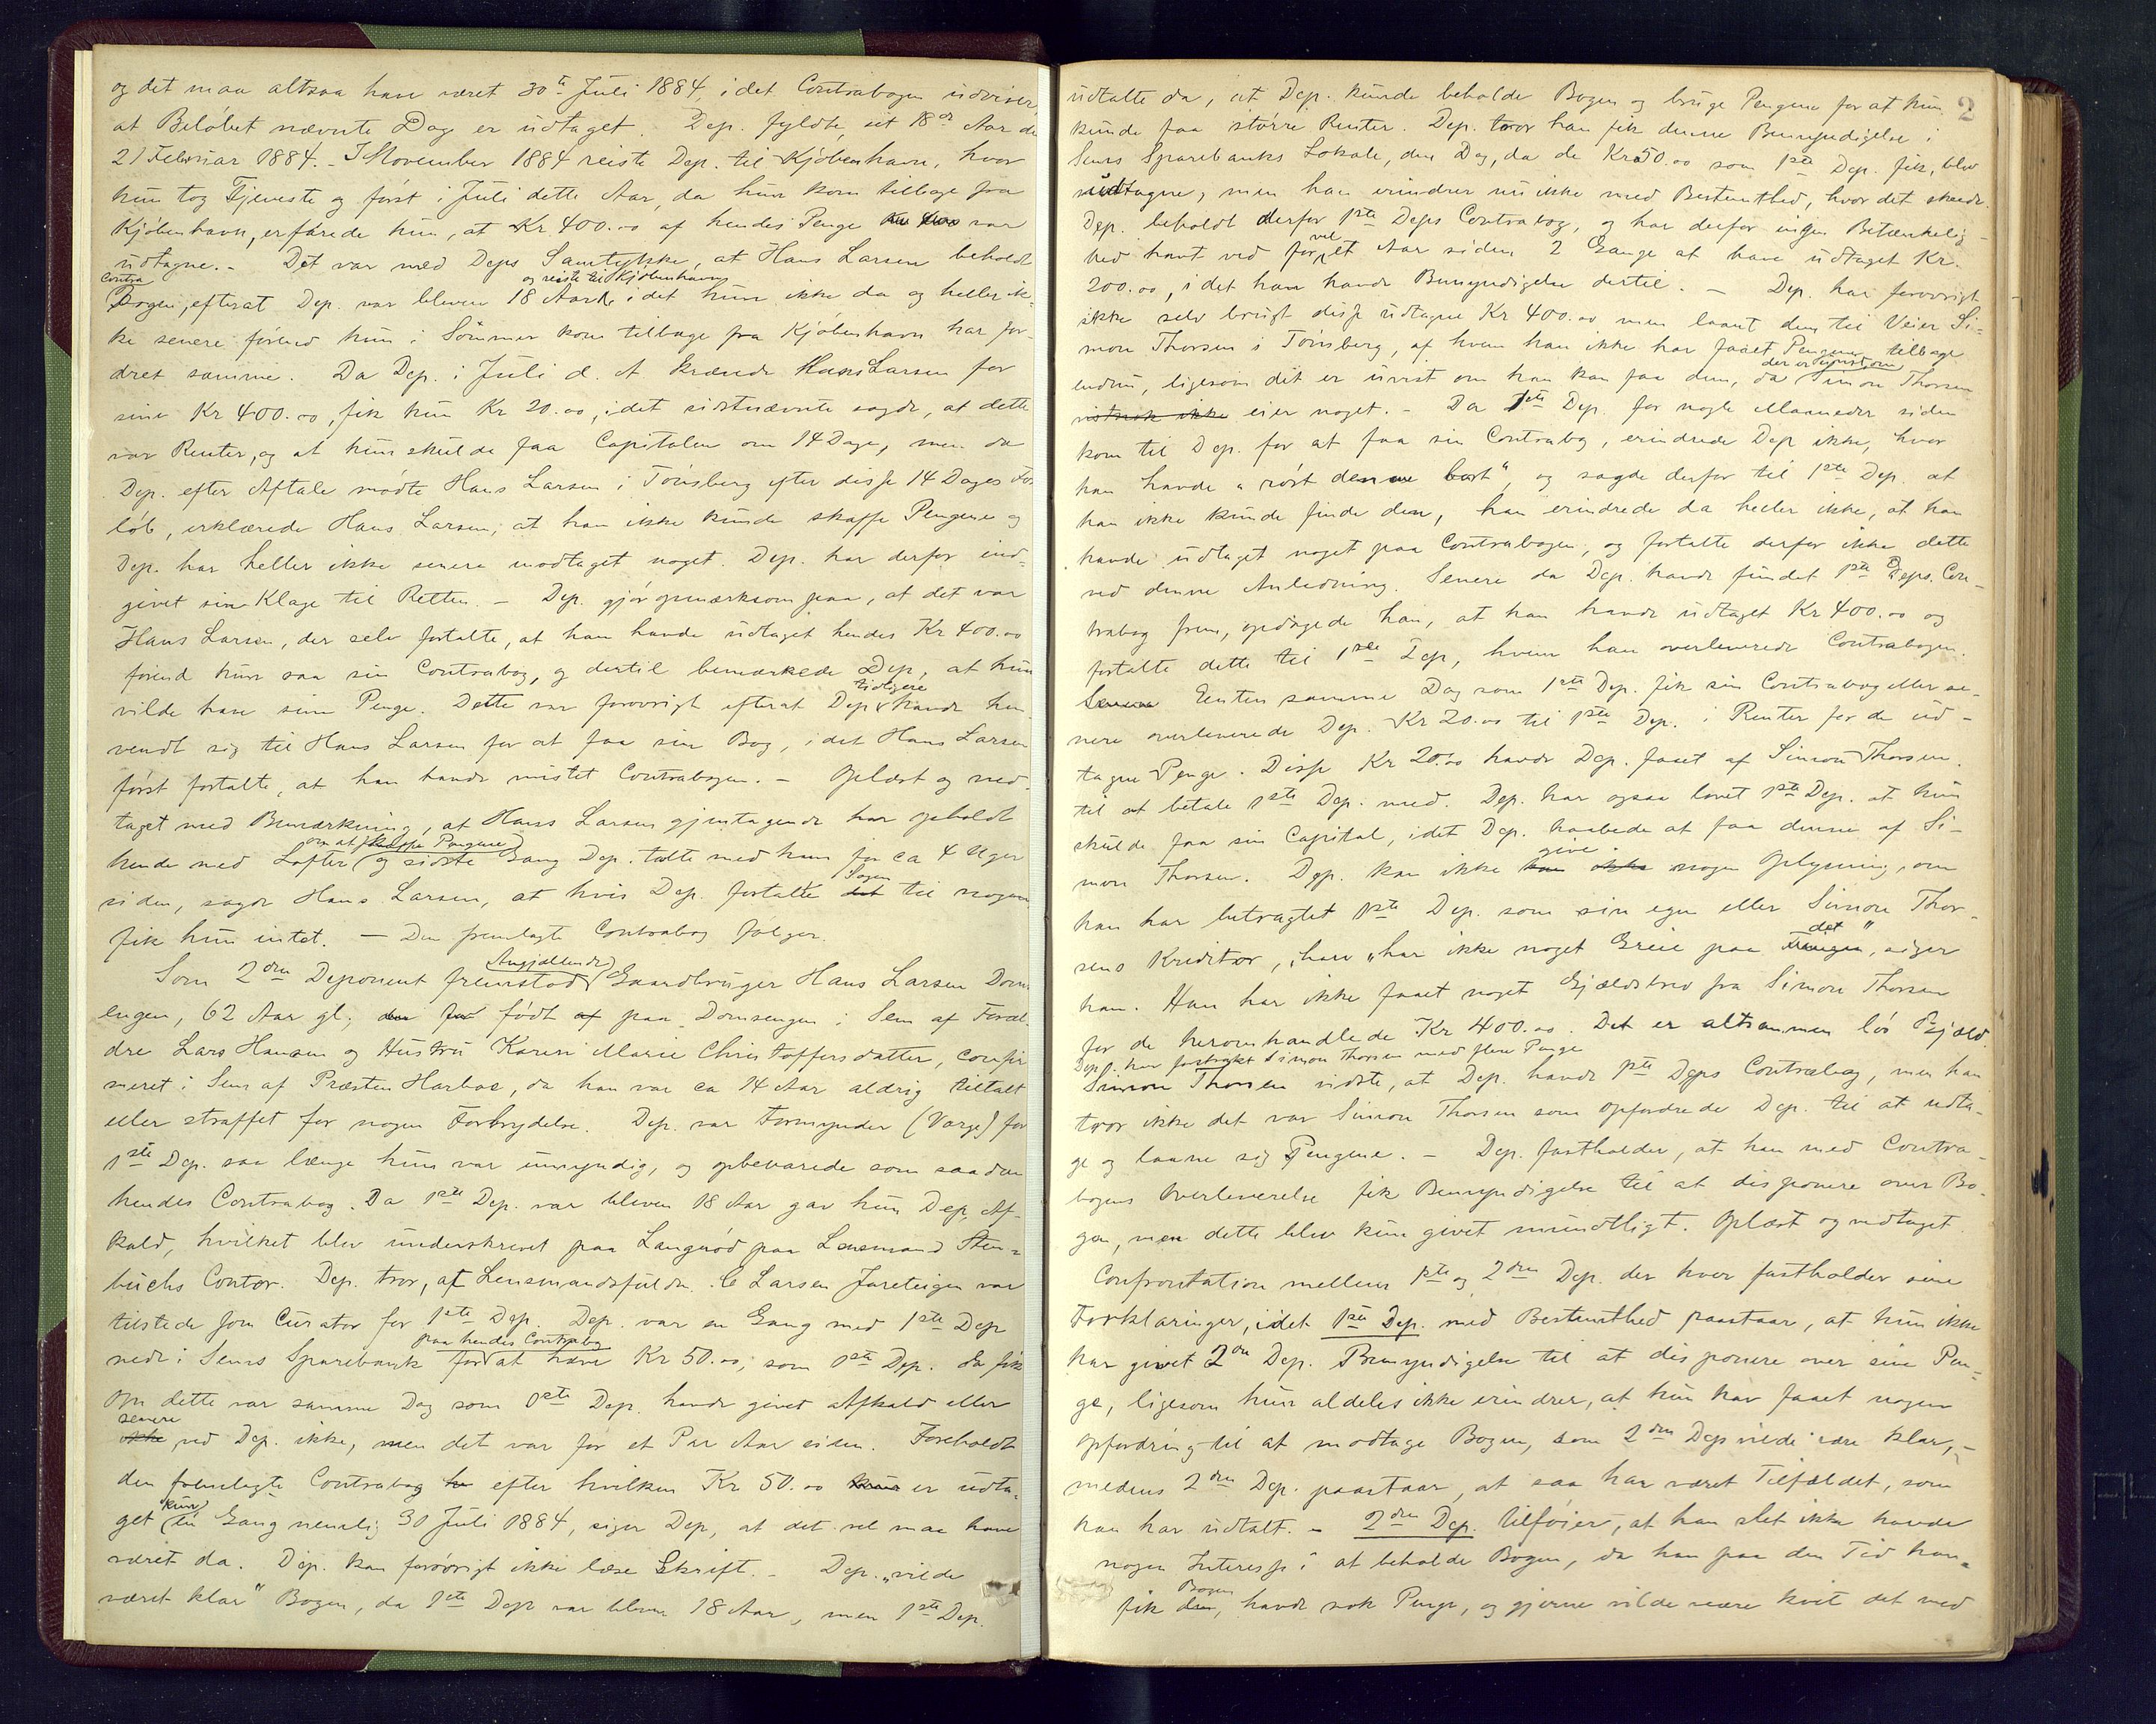 og det maa altsaa have været 30te Juli 1884, idet Contrabogen udviser
at Beløbet nævnte Dag er udtaget. Dep. fyldte sit 18de Aar de
21 Februar 1884. - I November 1884 reiste Dep. til Kjøbenhavn, hvor
hun tog Tjeneste og først i Juli dette Aar, da hun kom tilbage fra
Kjøbenhavn, erfarede hun, at Kr 400.00 af hendes Penge var
udtagne. - Det var med Deps Samtykke, at Hans Larsen beholdt
Contra og reiste til Kjøbenhavn
Bogen, efterat Dep. var bleven 18 Aar, idet hun ikke da og heller ik-
ke senere førend hun i Sommer kom tilbage fra Kjøbenhavn har for-
dret samme. Da Dep. i Juli d. A krævede Hans Larsen for
sine Kr 400.00, fik hun Kr 20.00, idet sidstnævnte sagde, at dette
var Renter, og at hun skulde faa Capitalen om 14 Dage, men da
Dep. efter Aftale mødte Hans Larsen i Tønsberg efter disse 14 Dages For
løb, erklærede Hans Larsen, at han ikke kunde skaffe Pengene og
Dep. har heller ikke senere modtaget noget. Dep. har derfor ind-
givet sin Klage til Retten. - Dep. gjør opmærksom paa, at det var
Hans Larsen, der selv fortalte, at han havde udtaget hendes Kr 400.00
førend hun saa sin Contrabog, og dertil bemærkede Dep, at hun
tidligere
vilde have sine Penge. Dette var forøvrigt efterat Dep havde hen
vendt sig til Hans Larsen for at faa sin Bog, idet Hans Larsen
først fortalte, at han havde mistet Contrabogen. - Oplæst og ved
taget med Bemærkning, at Hans Larsen gjentagende har opholdt
om at skaffe Pengene
hende med Løfter og sidste Gang Dep. talte med ham for ca 4 Uger
Sagen
siden, sagde Hans Larsen, at hvis Dep. fortalte det til nogen
fik hun intet. - Den fremlagte Contrabog følger.
Angjældende
Som 2den Deponent fremstod Gaardbruger Hans Larsen Doms
engen, 62 Aar gl, født af paa Domsengen i Sem af Foræl
dre Lars Hansen og Hustru Karen Marie Christoffersdatter, confir
meret i Sem af Præsten Harboe, da han var ca 14 Aar aldrig tiltalt
eller straffet for nogen Forbrydelse. Dep. var Formynder (Verge) for
1ste Dep. saa længe hun var umyndig, og opbevarede som saadan
hendes Contrabog. Da 1ste Dep. var bleven 18 Aar gav hun Dep. Af-
kald, hvilket blev underskrevet paa Langnød paa Lensmand Sten-
buchs Contor. Dep. tror, at Lensmandsfuldm. C Larsen Jareteigen var
tilstede som Curator for 1ste Dep. Dep. var en Gang med 1ste Dep
paa hendes Contrabog
nede i Sems Sparebank for at hæve Kr 50.00, som 1ste Dep. da fik
Om dette var samme Dag som 1ste Dep. havde givet Afkald eller
senere
ikke ved Dep. ikke, men det var for et Par Aar siden. Foreholdt
den fremlagte Contrabog efter hvilken Kr 50.00 er udta-
kun
get en Gang nemlig 30 Juli 1884, siger Dep, at det vel maa have
været da. Dep. kan forøvrigt ikke læse Skrift. - Dep. „vilde
været klar“ Bogen, da 1ste Dep var bleven 18 Aar, men 1ste Dep.
2
udtalte da, at Dep. kunde beholde Bogen og bruge Pengene for at hun
kunde faa større Renter. Dep. tror han fik denne Bemyndigelse i
Sems Sparebanks Lokale, den Dag, da de Kr 50.00 som 1ste Dep. fik, blev
udtagne, men han erindrer nu ikke med Bestemthed, hvor det skeede.
Dep. beholdt derfor 1ste Deps Contrabog, og har derfor ingen Betænkelig-
vel
hed havt ved for et Aar siden 2 Gange at have udtaget Kr.
200.00, idet han havde Bemyndigelse dertil. - Dep. har forøvrigt
ikke selv brugt disse udtagne Kr 400.00 men laant dem til Veier Si-
mon Thorsen i Tønsberg, af hvem han ikke har faaet Pengene tilbage
der er uvist om
endnu, ligesom det er uvist om han kan faa dem, da Simon Thorsen
vistnok ikke eier noget. - Da 1ste Dep. for nogle Maaneder siden
kom til Dep. for at faa sin Contrabog, erindrede Dep ikke, hvor
han havde „røst denne bort“, og sagde derfor til 1ste Dep. at
han ikke kunde finde den, han erindrede da heller ikke, at han
havde udtaget noget paa Contrabogen, og fortalte derfor ikke dette
ved denne Anledning. Senere da Dep. havde fundet 1ste Deps. Con-
trabog frem, opdagede han, at han havde udtaget Kr 400.00 og
fortalte dette til 1ste Dep, hvem han overleverede Contrabogen.
Senere Enten samme Dag som 1ste Dep. fik sin Contrabog eller se-
nere overleverede Dep. Kr 20.00 til 1ste Dep. i Renter for de ud-
tagne Penge. Disse Kr 20.00 havde Dep. faaet af Simon Thorsen
til at betale 1ste Dep. med. Dep. har ogsaa lovet 1ste Dep. at hun
skulde faa sin Capital, idet Dep. haabede at faa denne af Si-
give
mon Thorsen. Dep. kan ikke nogen Oplysning, om
han har betragtet 1ste Dep. som sin egen eller Simon Thor-
det
sens Kreditor, han „har ikke noget Greie paa “, siger
han. Han har ikke faaet noget Gjældsbrev fra Simon Thorsen
for de heromhandlede Kr 400.00. Det er altsammen løs Gjæld.
Dep. har forstrakt Simon Thorsen med flere Penge
Simon Thorsen vidste, at Dep. havde 1ste Deps Contrabog, men han
tror ikke det var Simon Thorsen som opfordrede Dep. til at udta-
ge og laane sig Pengene. - Dep. fastholder, at han med Contra-
bogens Overleverelse fik Bemyndigelse til at disponere over Bo-
gen, men dette blev kun givet mundtligt. Oplæst og vedtaget
Confrontation mellem 1ste og 2den Dep. der hver fastholder sine
Forklaringer, idet 1ste Dep. med Bestemthed paastaar, at hun ikke
har givet 2den Dep. Bemyndigelse til at disponere over sine Pen-
ge, ligesom hun aldeles ikke erindrer, at hun har faaet nogen
Opfordring til at modtage Bogen, som 2den Dep vilde være klar, -
medens 2den Dep. paastaar, at saa har været Tilfældet, som
han har udtalt. - 2den Dep. tilføier, at han slet ikke havde
nogen Interesse i at beholde Bogen, da han paa den Tid han
Bogen
fik den, havde nok Penge, og gjerne vilde være kvit det med